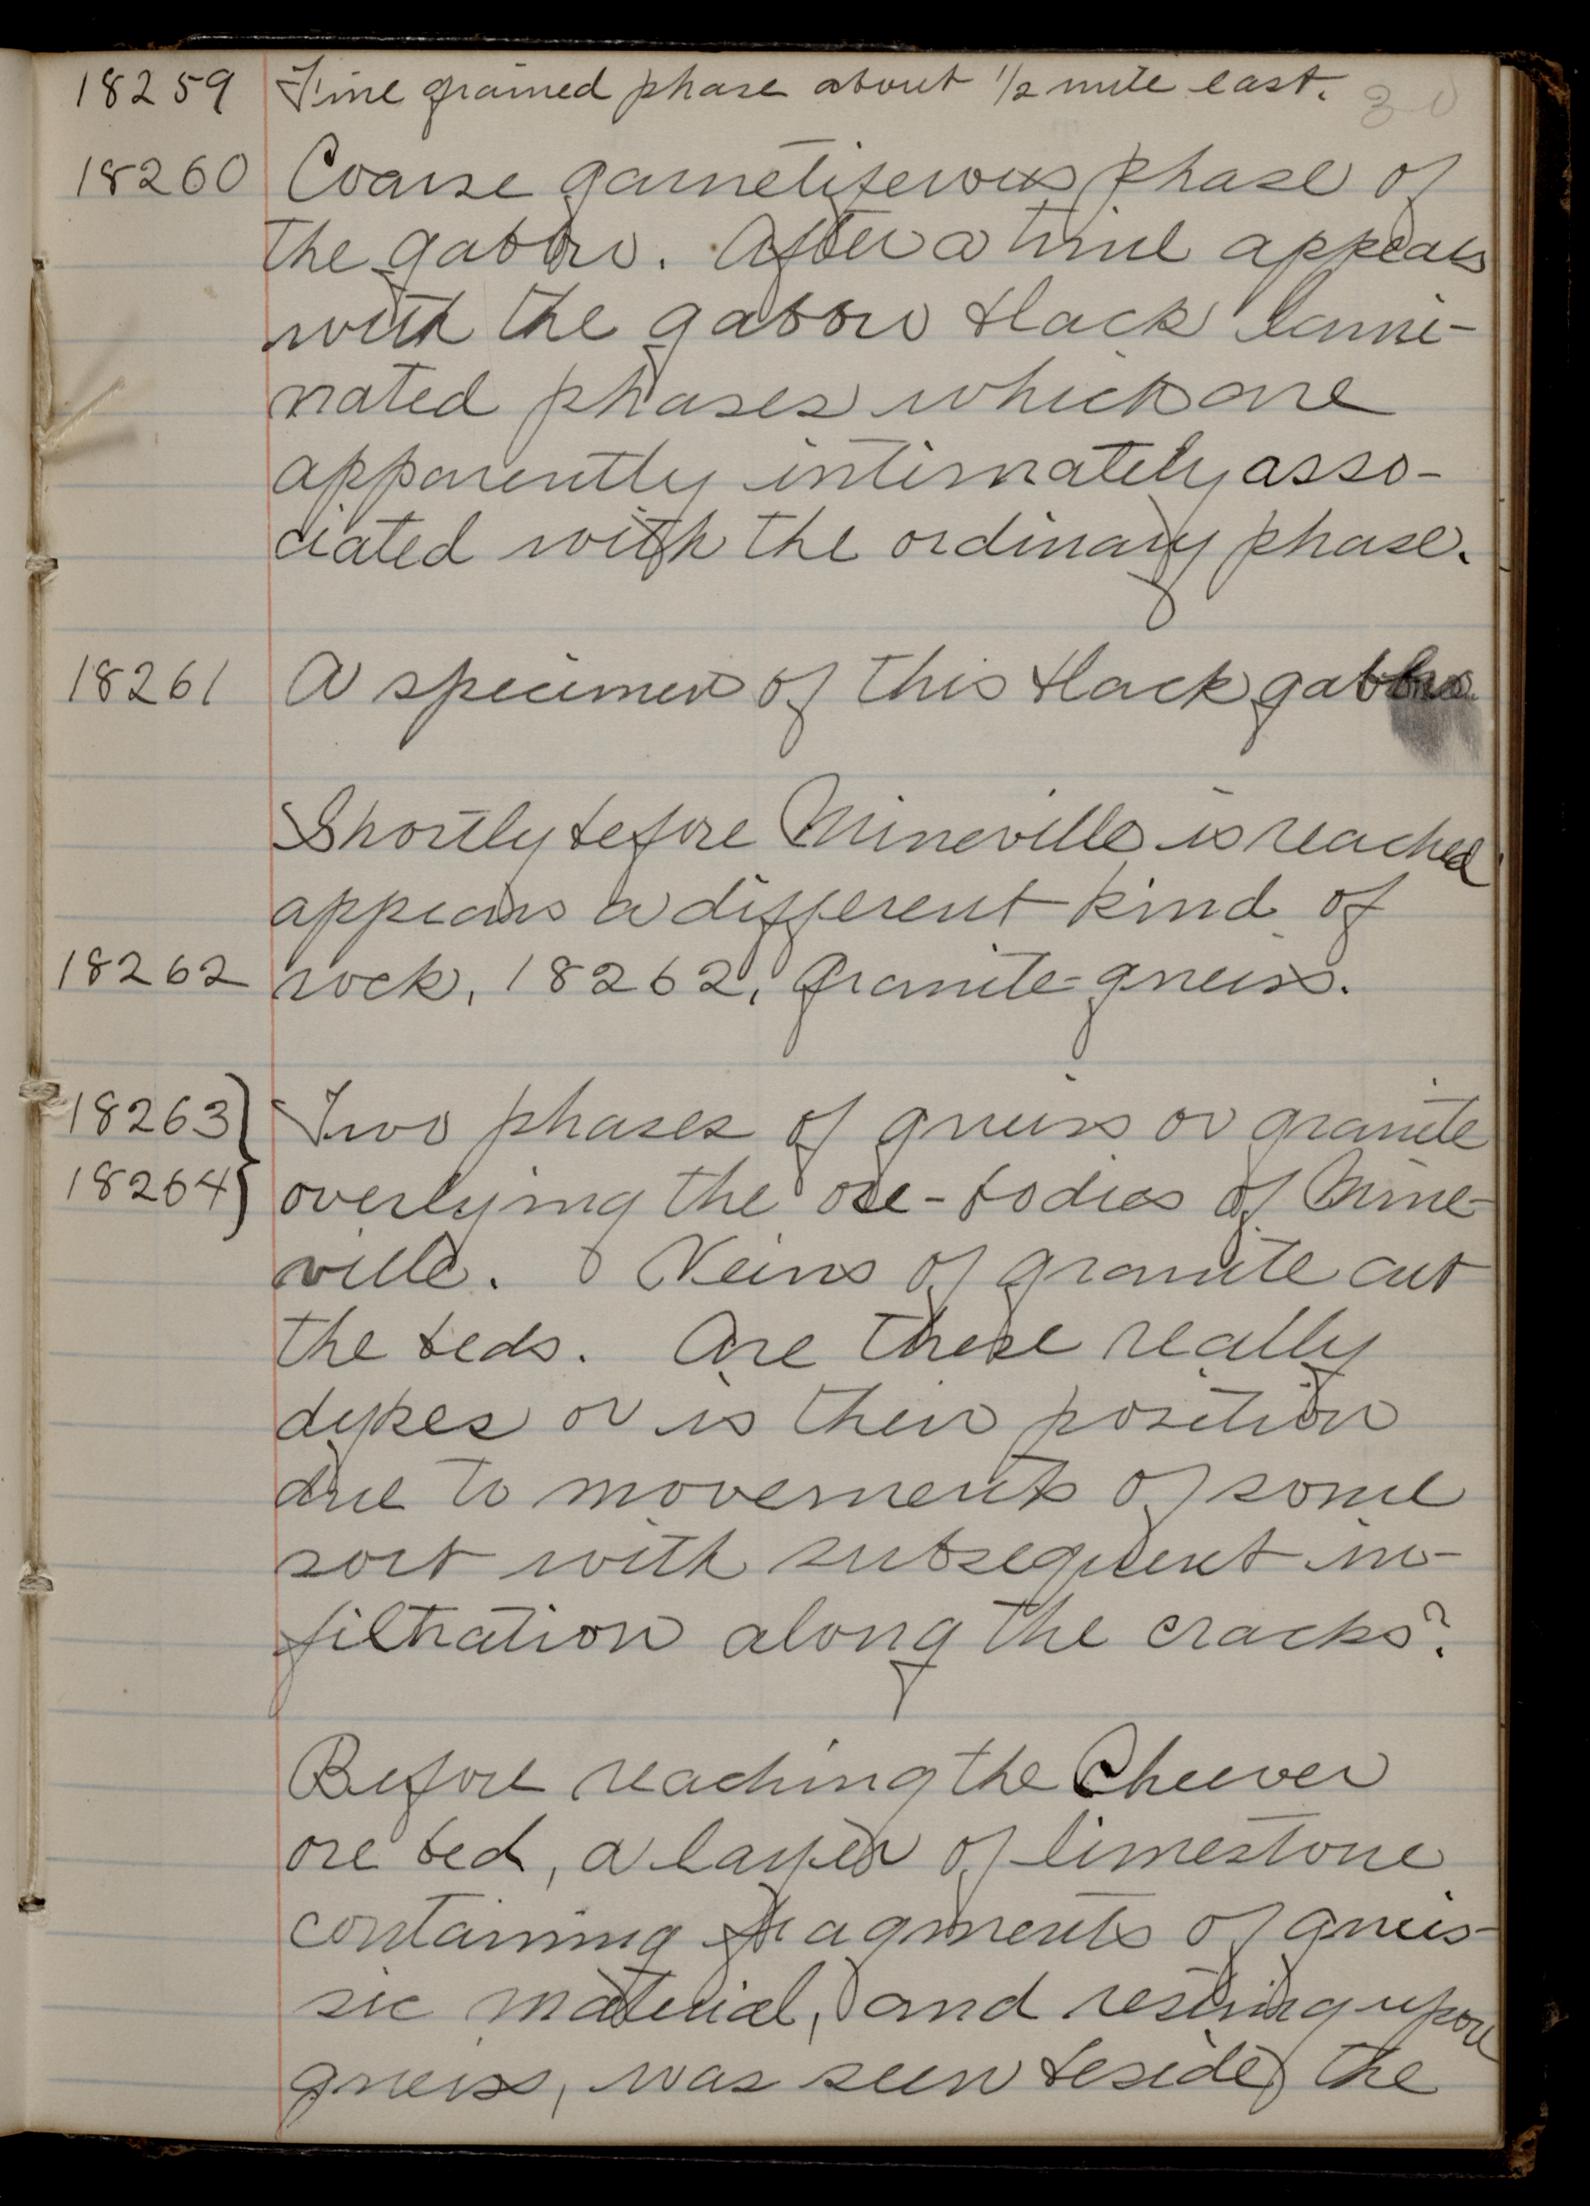 18259 Fine grained phase about 1/2 mile east. 30
18260 Coarse garnetiferous phase of
the gabbro. After a time appears
with the gabbro black lami-
nated phases which are
apparently intimately asso-
ciated with the ordinary phase.
18261 A specimen of this black gabbro.
Shortly before Mineville is reached
appears a different kind of
18262 rock, 18262, granite-gneiss.
18263} Two phases of gneiss or granite
18264} overlying the ore-bodies of Mine-
ville. Veins of granite cut
the beds. Are these really
dykes or is their position
due to movements of some
sort with subsequent in-
filtration along the cracks?
Before reaching the Cheever
ore bed, a layer of limestone
containing fragments of gneis-
sic material, and resting upon
gneiss, was seen beside the